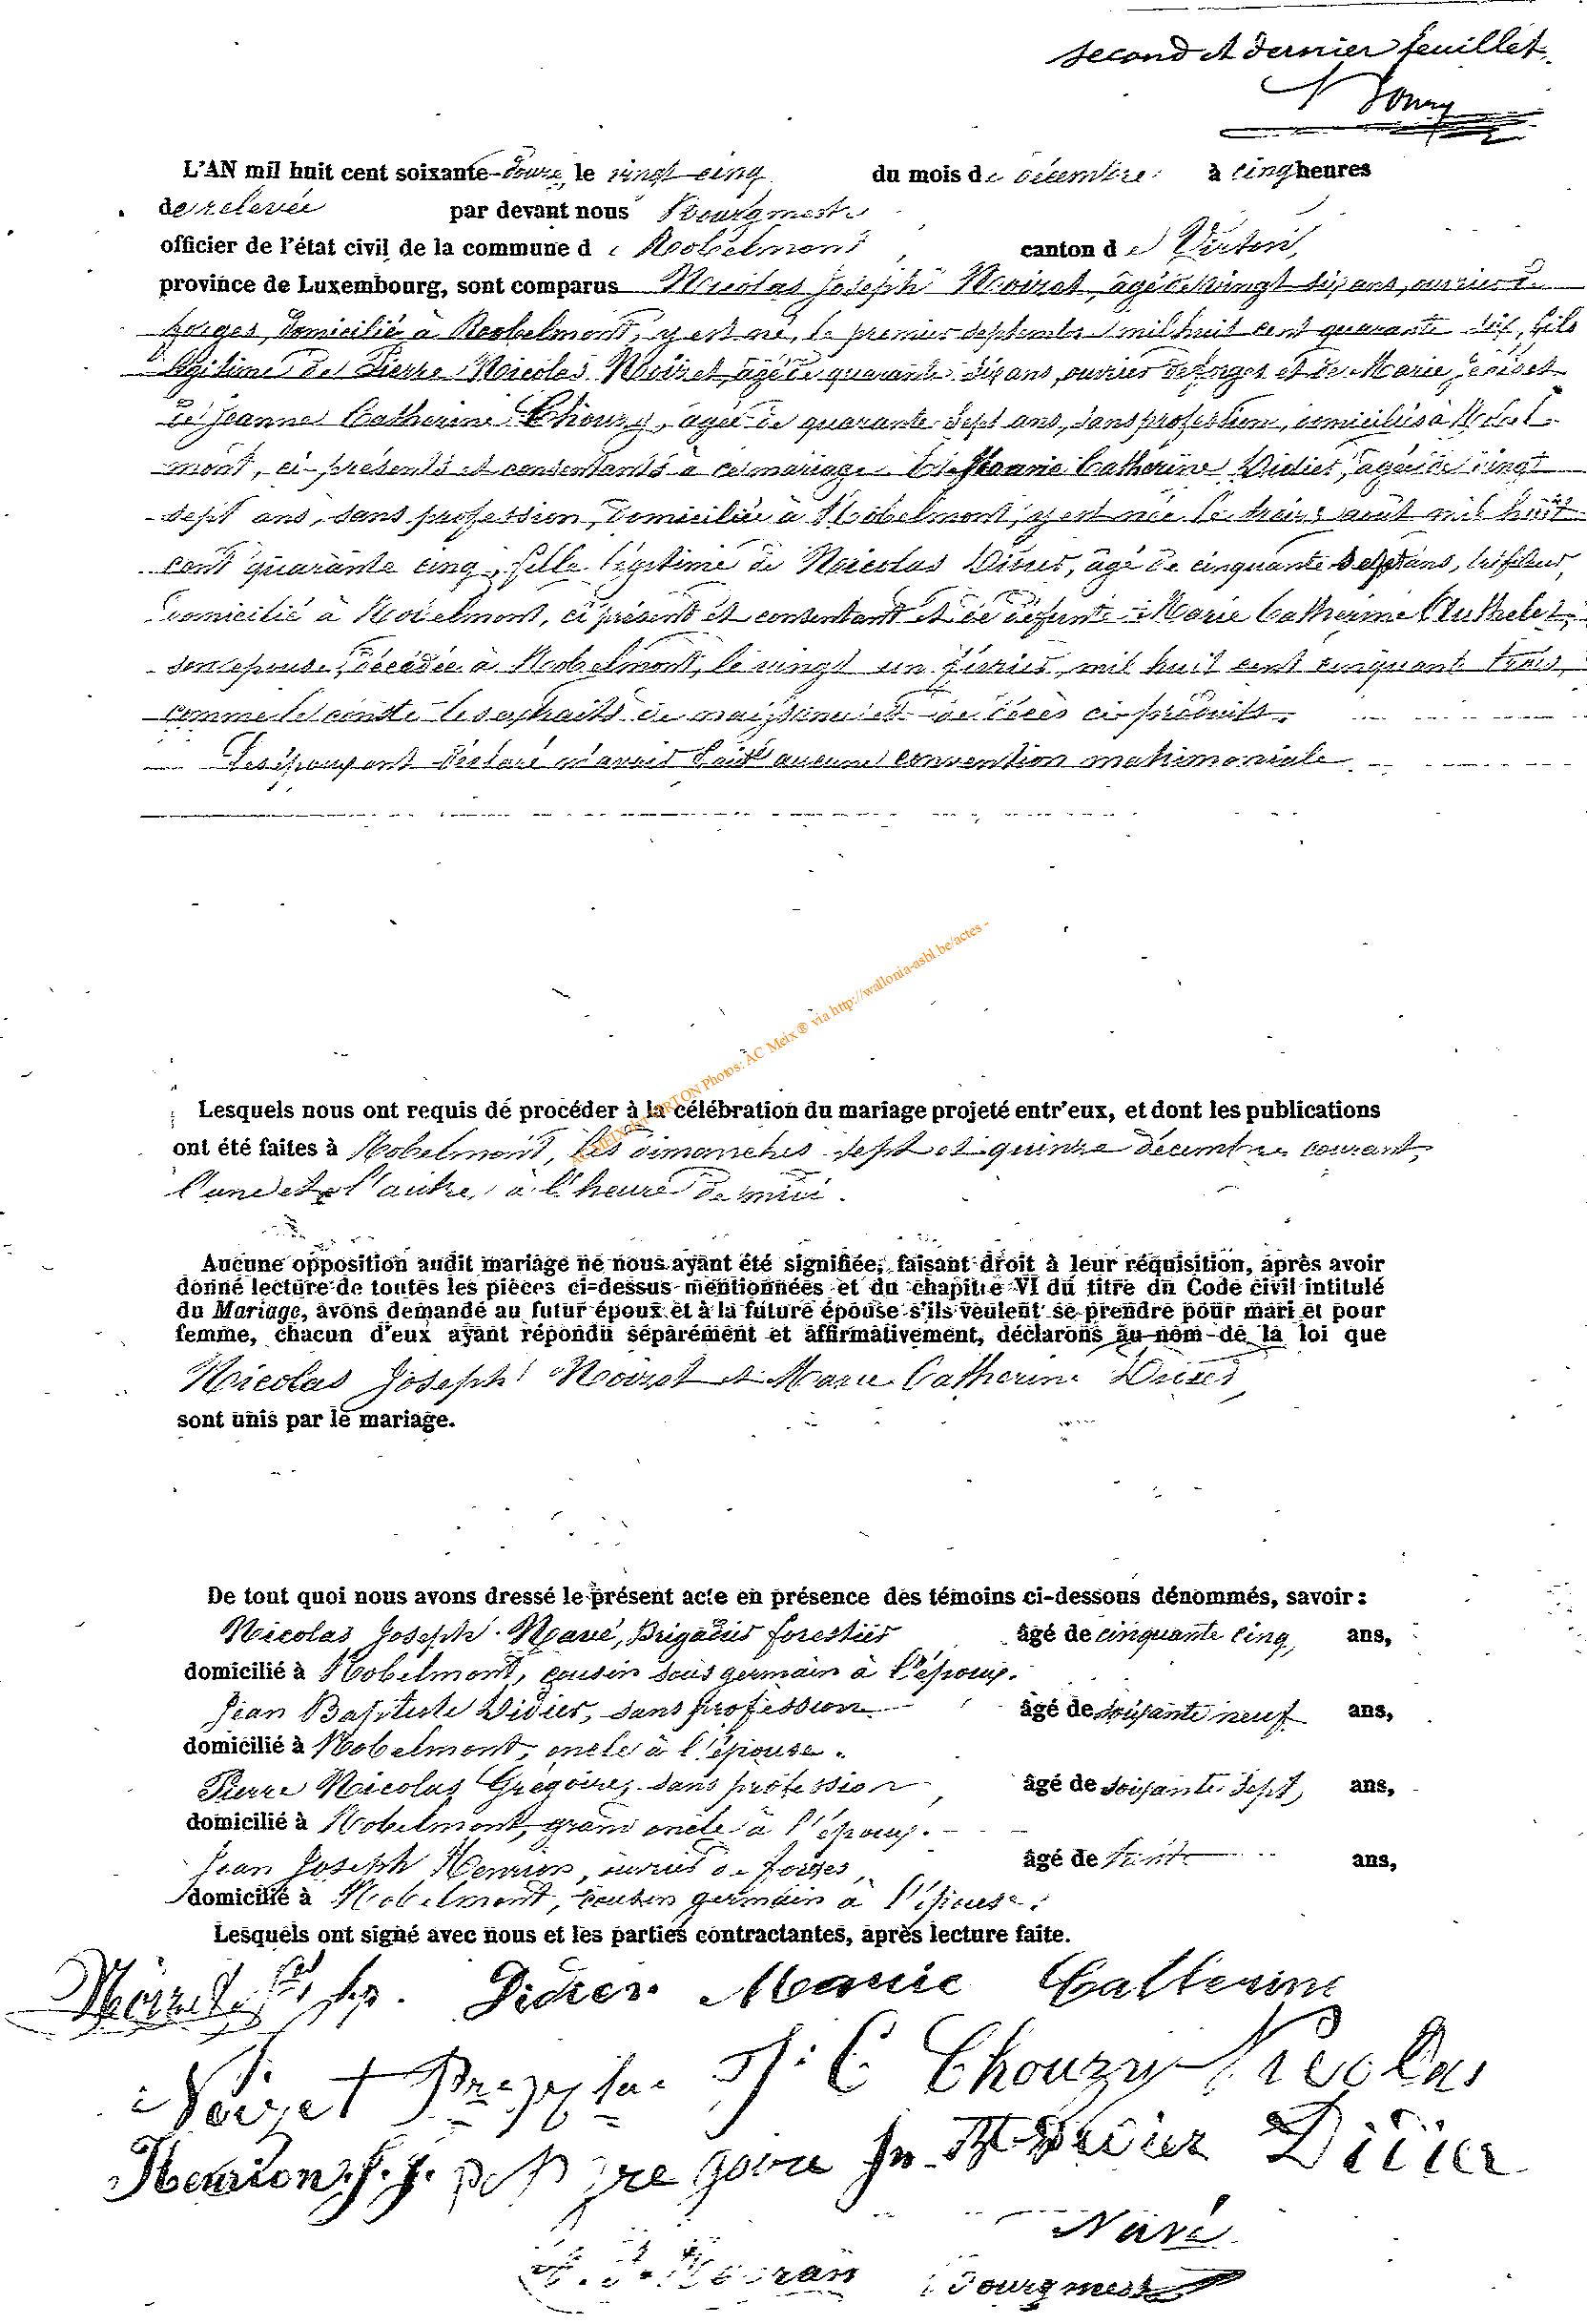 second et dernier feuillet
L'AN mil huit cent soixante-douze, le vingt cinq du mois de décembre à cinq heures
de relevée par devant nous Bourgmestre
officier de l'état civil de la commune de Robelmont canton de Virton,
province de Luxembourg, sont comparus Nicolas Joseph Noiret, âgé de vingt six ans, ouvrier de
forges, domicilié à Robelmont, y est né, le premier septembre mil huit cent quarante six, fils
légitime de Pierre Nicolas Noiret, âgé de quarante six ans, ouvrier de forges et de Marie
Jeanne Catherine Chouzy, âgée de quarante sept ans, sans profession, domiciliés à Robel-
mont, ci-présents et consentants à ce mariage. Et Catherine Didier, âgée de vingt
sept ans, sans profession, domiciliée à Robelmont, y est née le août mil huit
cent quarante cinq, fille légitime de Nicolas Didier, âgé de cinquante sept ans, tréfileur,
domicilié à Robelmont, ci présent et consentant et de défunte Marie Catherine
son épouse, décédée à Robelmont, le vingt un février mil huit cent cinquante trois,
comme le conste les extraits de naissance et de décès ci-produits.
Les époux ont déclaré n'avoir fait aucune convention matrimoniale
AC MEIX Photos: AC Meix ® via http://wallonia-asbl.be/actes -
Lesquels nous ont requis de procéder à la célébration du mariage projeté entr'eux, et dont les publications
ont été faites à Robelmont, les dimanches sept et quinze décembre courant,
l'une et l'autre, à l'heure de midi.
Aucune opposition audit mariage ne nous ayant été signifiée, faisant droit à leur réquisition, après avoir
donné lecture de toutes les pièces ci-dessus mentionnées et du chapitre VI du titre du Code civil intitulé
du Mariage, avons demandé au futur époux et à la future épouse s'ils veulent se prendre pour mari et pour
femme, chacun d'eux ayant répondu séparément et affirmativement, déclarons au nom de la loi que
Nicolas Joseph Noiret et Marie Catherine Didier
sont unis par le mariage.
De tout quoi nous avons dressé le présent acte en présence des témoins ci-dessous dénommés, savoir :
Nicolas Joseph Navé, Brigadier forestier âgé de cinquante cinq, ans,
domicilié à Robelmont, cousin sous germain à l'époux.
Jean Baptiste Didier, sans profession âgé de soixante neuf ans,
domicilié à Robelmont, oncle à l'épouse.
Pierre Nicolas Grégoire, sans profession, âgé de soixante sept, ans,
domicilié à Robelmont, grand oncle à l'époux.
Jean Joseph Henrion, ouvrier de forges, âgé de trente ans,
domicilié à Robelmont, cousin germain à l'épouse.
Lesquels ont signé avec nous et les parties contractantes, après lecture faite.
Noiret Didier Marie Catherine
Noiret J. C Chouzy Nicolas
Henrion J. J. Didier Didier
Navé
Bourgmestre